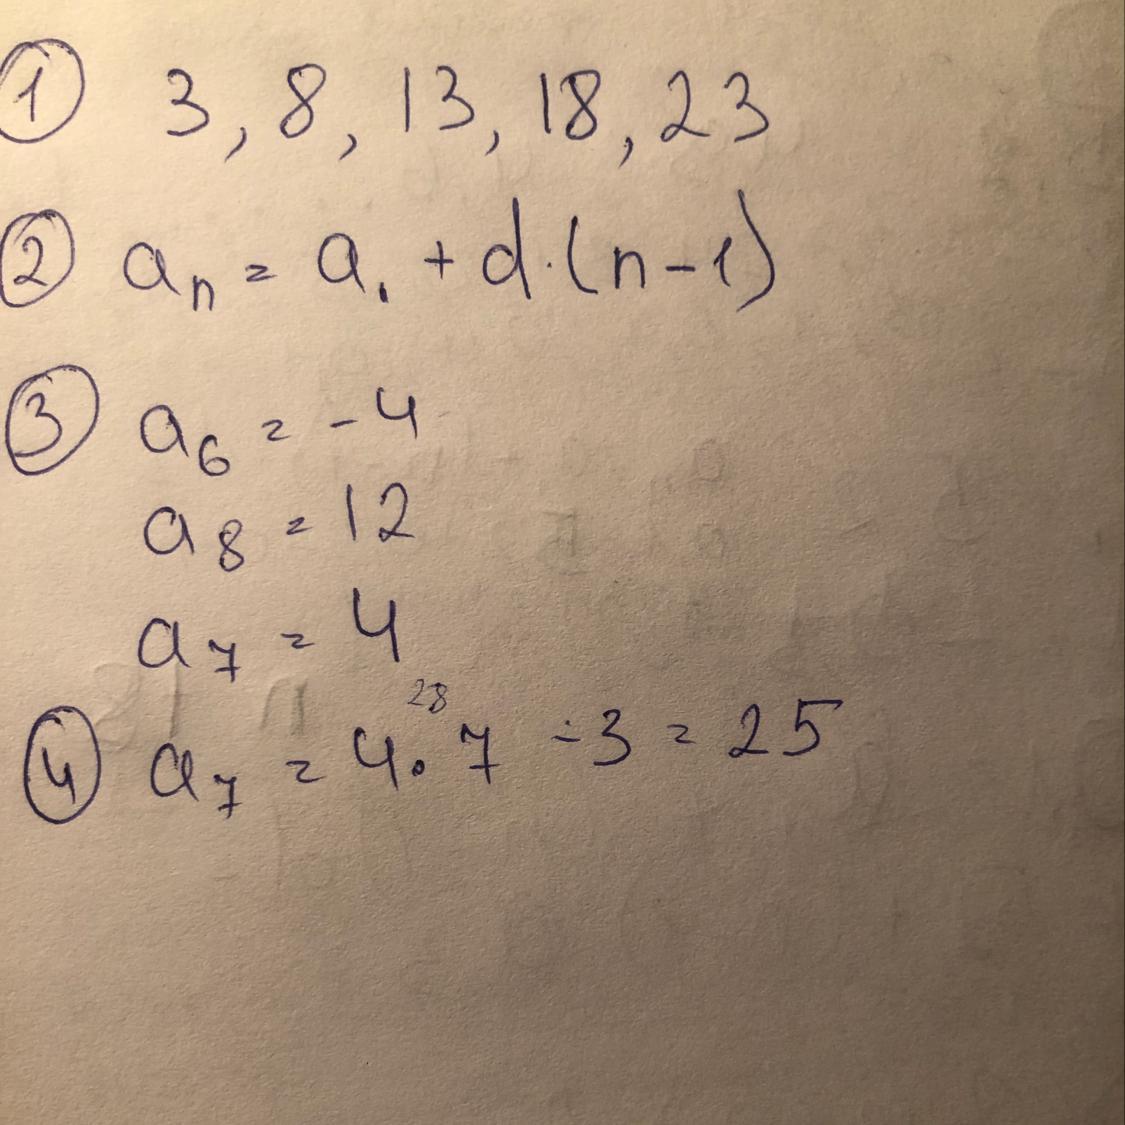 ① 3, 8, 13, 18, 23
② aₙ = a₁ + d·(n-1)
③ a₆ = -4
a₈ = 12
a₇ = 4
28
④ a₇ = 4·7 -3 = 25